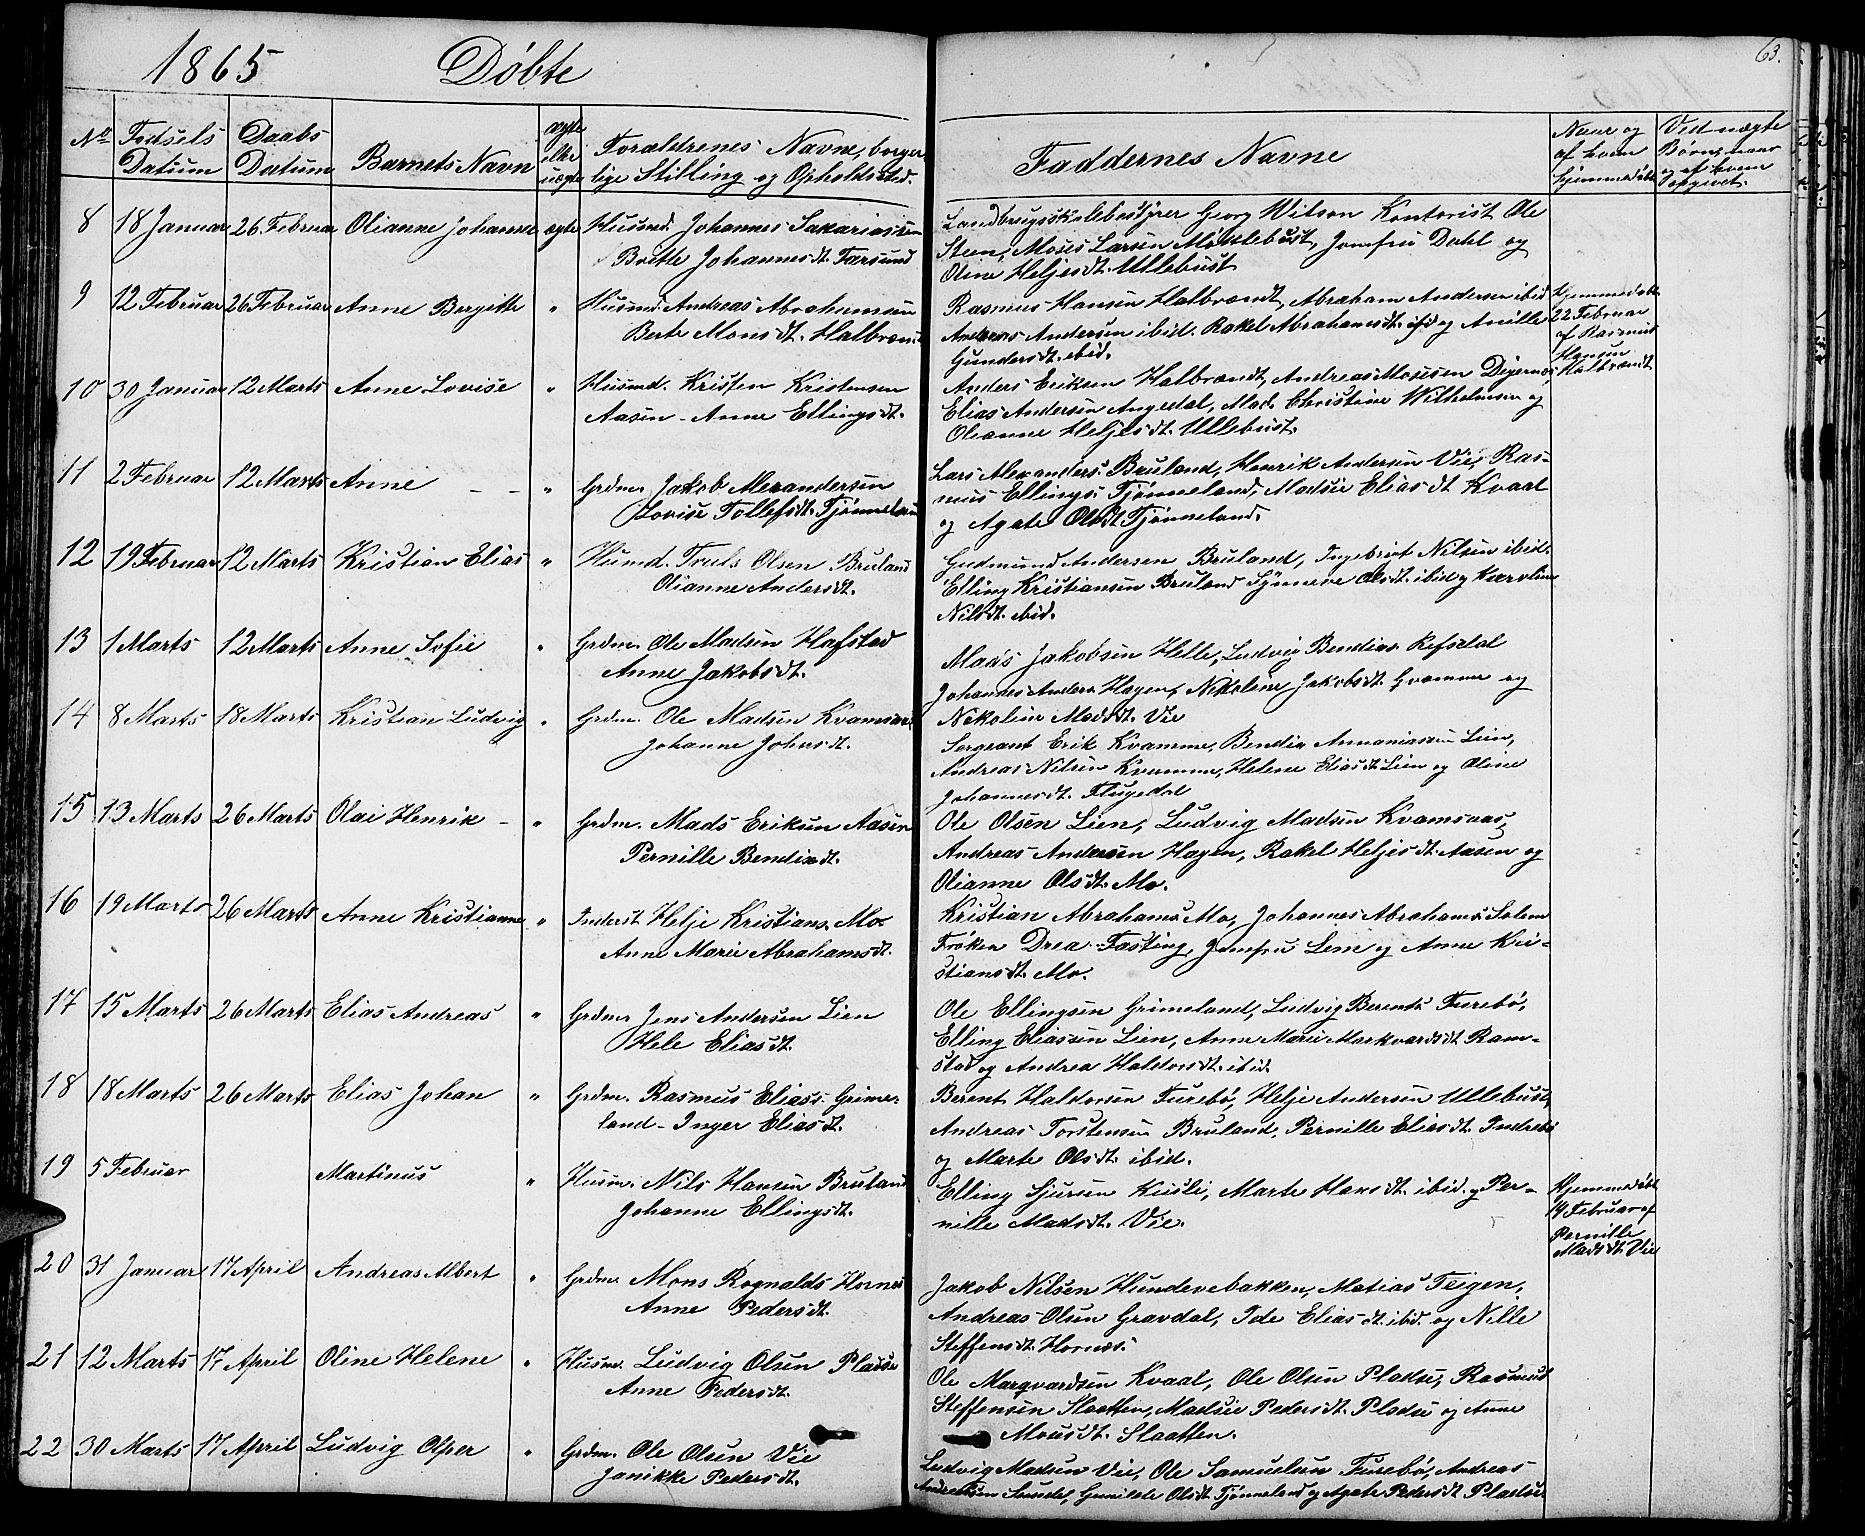 1865 Döbte
63.
No Fødsels Datum
Daabs Datum
Barnets Navn
ægte eller uægte
Forældrenes Navne, borgerlige Stilling og Opholdssted.
Faddernes Navne
Naar og af hvem hjemmedøbt
Ved uægte Børn, naar og af hvem opgivet.
8 18 Januar 26 Februar Olianne Johanne ægte Husmd. Johannes Sakariassen
Berthe Johannesdt. Farsund
Landbrugsskolebestyrer Georg Wilson Kontorist Ole
Steen, Moses Larsen Mosslebust, Jomfru Dahl og
Oline Heljesdt. Ullebust
9 12 Februar 26 Februar Anne Bergitte " Husmd. Andreas Abrahamsen
Berte Monsdt. Halbrend
Rasmus Hansen Halbrendt, Abraham Andersen ibid
Andreas Andersen ibid. Rakel Abrahamsdt. ibid og Anille
Gundersdt. ibid.
Hjemmedøbt
22 Februar
af Rasmus
Hansen
Halbrendt
10 30 Januar 12 Marts Anne Lovise " Husmd. Kristen Kristensen
Aasen - Anne Ellingsdt.
Anders Eriksen Halbrendt, Andreas Mosesen Digernes,
Elias Andersen Angedal, Mad. Christine Wilhelmsen og
Oleanne Heljesdt. Ullebust.
11 2 Februar 12 Marts Anne - - " Grdm. Jakob Alexandersen
Lovise Tollefsdt. Tjønneland
Lars Alexanders. Bruland, Henrik Andersen Vie, Ras-
mus Ellings. Tjønneland, Madsie Eliasdt Kvaal
og Agate Olsdt Tjønneland.
12 19 Februar 12 Marts Kristian Elias " Husmd. Truls Olsen Bruland
Olianne Andersdt.
Gudmund Andersen Bruland, Ingebrigt Nilsen ibid.
Elling Kristiansen Bruland Synneve Olsdt. ibid og Karoline
Nilsdt. ibid.
13 1 Marts 12 Marts Anne Sofie " Grdm. Ole Madsen Hafstad
Anne Jakobsdt.
Mads Jakobsen Helle, Ludvig Bendixs. Refsdal
Johannes Anders. Hagen, Nikoline Jakobsdt. Gromme og
Nikoline Madsdt. Vie
14 8 Marts 18 Marts Kristian Ludvig " Grdm. Ole Madsen Kvamsaas
Johanne Johnsdt.
Sergeant Erik Kvamme, Bendix Annaniassen Lien,
Andreas Nilsen Kvamme, Helene Eliasdt Lien og Oline
Johannesdt. Flugedal
15 13 Marts 26 Marts Olai Henrik - " Grdm. Mads Eriksen Aasen
Pernille Bendixdt.
Ole Olsen Lien, Ludvig Madsen Kvamsaas,
Andreas Andersen Hagen, Rakel Heljesdt. Aasen og
Olianne Olsdt. Mo.
16 19 Marts 26 Marts Anne Kristianne " Inderst Helje Kristians. Mo
Anne Marie Abrahamsdt.
Kristian Abrahams. Mo, Johannes Abrahams. Solem
Frøken Drea Fasting, Jomfru Lem og Anne Kri-
stiansdt. Mo.
17 15 Marts 26 Marts Elias Andreas " Grdm. Jens Andersen Lien
Hele Eliasdt.
Ole Ellingsen Grimeland, Ludvig Berents. Furebø,
Elling Eliassen Lien, Anne Marie Markvardsdt Ram-
stad og Andrea Haldorsdt. ibid.
18 18 Marts 26 Marts Elias Johan " Grdm. Rasmus Eliass. Grime-
land - Inger Eliasdt.
Berent Haldorsen Furebø, Helje Andersen Ullebust,
Andreas Torstensen Bruland, Pernille Eliasdt. Indrebø
og Marte Olsdt. ibid.
19 5 Februar Martinus " Husm. Nils Hansen Bruland
Johanne Ellingsdt.
Elling Sjursen Kusli, Marte Hansdt. ibid. og Per-
nille Madsdt. Vie.
Hjemmedøbt
14 Februar af
Pernille
Madsdt. Vie
20 31 Januar 17 April Andreas Albert " Grdm. Mons Rognalds. Hornes
Anne Pedersdt.
Jakob Nilsen Hundevebakken, Matias Teigen,
Andreas Olsen Gravdal, Ide Eliasdt. ibid. og Nille
Steffensdt. Hornes.
21 12 Marts 17 April Oline Helene " Husm. Ludvig Olsen Pladse
Anne Pedersdt.
Ole Marqvardsen Kvaal, Ole Olsen Pladse, Rasmus
Steffensen Slaatten, Madsie Pedersdt. Pladse og Anne
Monsdt. Slaatten.
22 30 Marts 17 April Ludvig Osper " Grdm. Ole Olsen Vie
Janikke Pedersdt.
Ludvig Madsen Vie, Ole Samuelsen Furebø, Andreas
Andreassen Sunde, Gunilde Olsdt. Tjønneland og Agate Pedersdt Pladse.